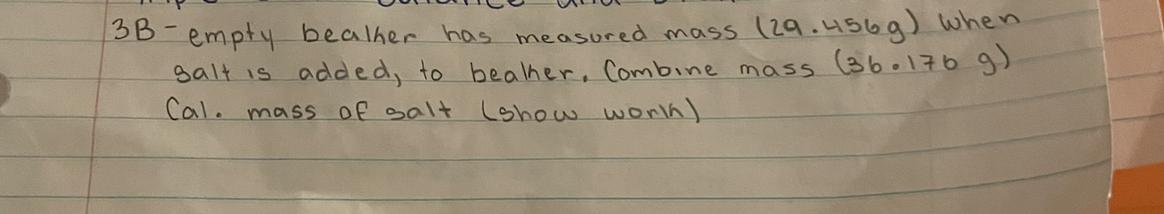 3B - empty beaker has measured mass (29.456g) When
salt is added, to beaker. Combine mass (36.176 g)
Cal. mass of salt (show work)